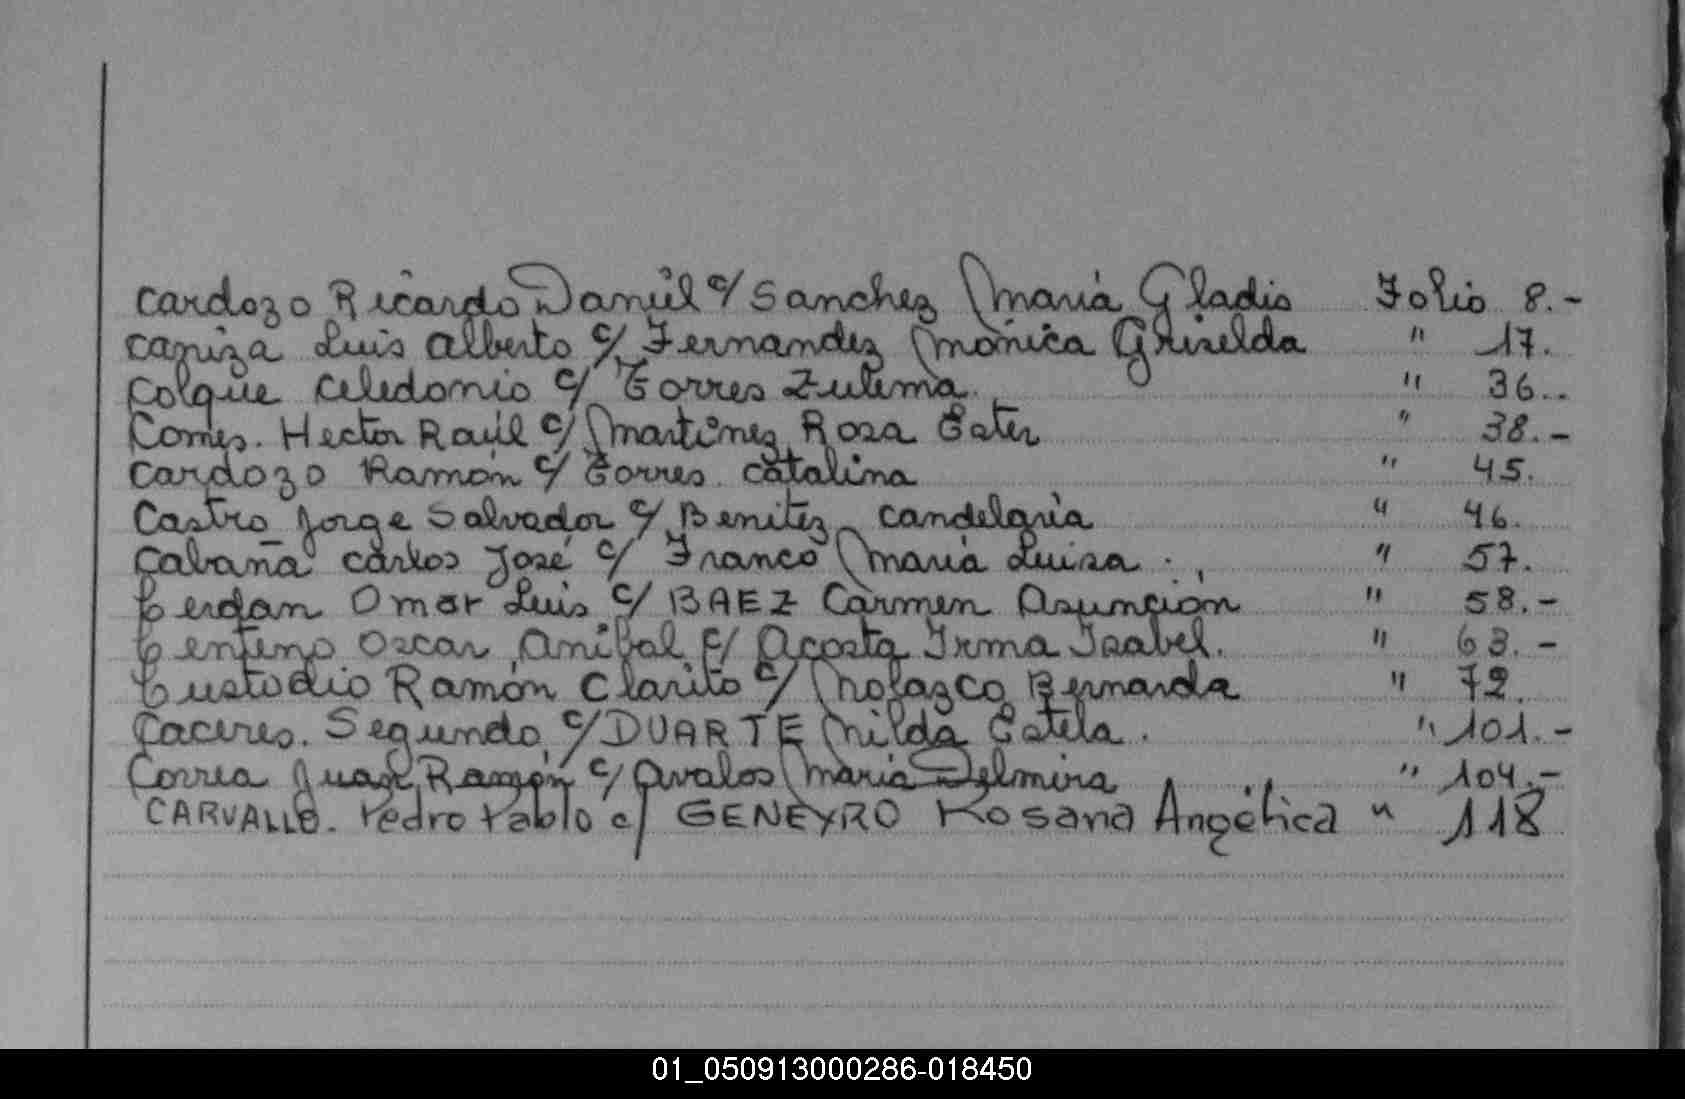 Cardozo Ricardo Daniel c/ Sanchez Maria Gladis Folio 8.-
Caniza Luis Alberto c/ Fernandez Mónica Griselda " 17.
Colque Celedonio c/ Torres Zulema. " 36..
Comes. Hector Raúl c/ Martinez Rosa Ester " 38.-
Cardozo Ramón c/ Torres Catalina " 45.
Castro Jorge Salvador c/ Benitez Candelaria " 46.
Cabaña Carlos José c/ Franco Maria Luisa . " 57.
Cerdan Omar Luis c/ BAEZ Carmen Asunción " 58.-
Centeno Oscar Anibal c/ Acosta Irma Isabel. " 63.-
Custodio Ramón Clarito c/ Nolazco Bernarda " 72.
Caceres. Segundo c/ DUARTE Nilda Estela. " 101.-
Correa Juan Ramón c/ Avalos Maria Delmira " 104.-
CARVALLO. Pedro Pablo c/ GENEYRO Rosana Angélica " 118
01_050913000286-018450